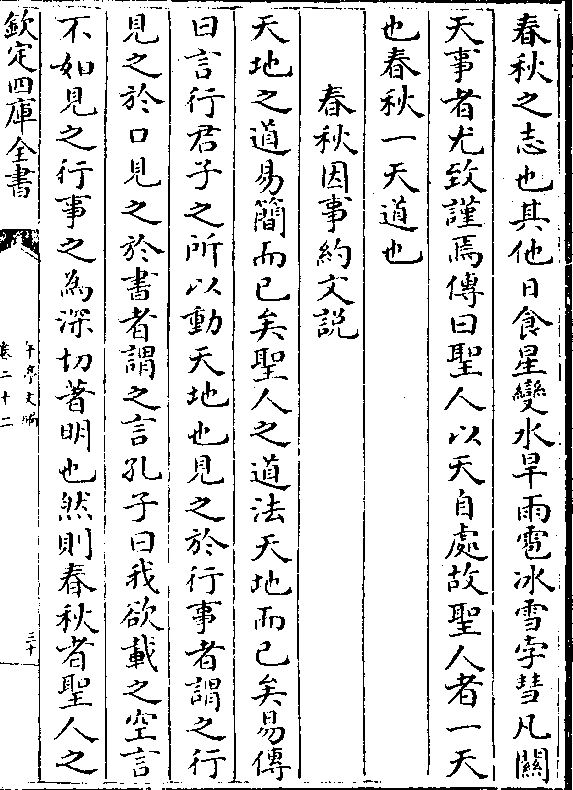 春秋之志也其他日食星變水旱雨雹冰雪孛彗凡關
天事者尤致謹焉傳曰聖人以天自處故聖人者一天
也春秋一天道也
春秋因事約文説
天地之道易簡而已矣聖人之道法天地而已矣易傳
曰言行君子之所以動天地也見之於行事者謂之行
見之於口見之於書者謂之言孔子曰我欲載之空言
不如見之行事之為深切著明也然則春秋者聖人之
欽定四庫全書
午亭文編
卷二十二
三十